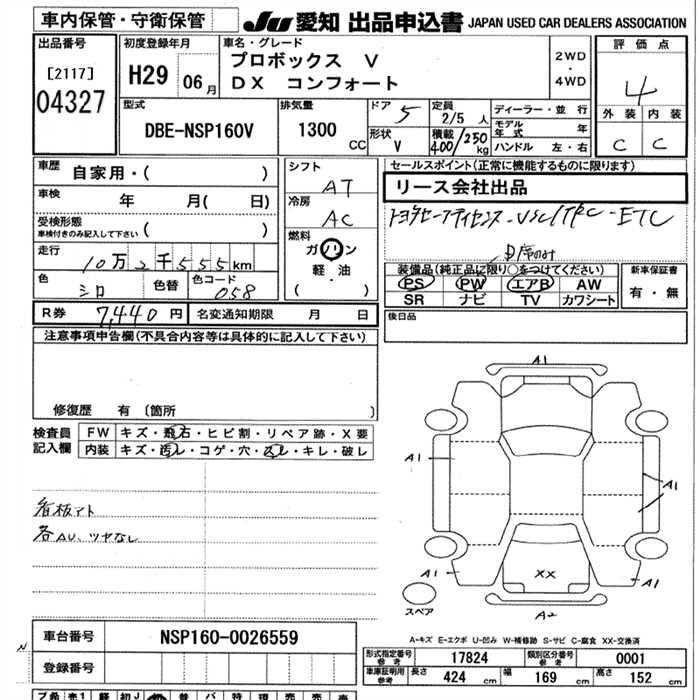 車内保管・守衛保管
JU 愛知 出品申込書 JAPAN USED CAR DEALERS ASSOCIATION
出品番号
[2117]
04327
初度登録年月
H29 06月
車名・グレード
プロボックス V
DX コンフォート
2WD
・
4WD
評価点
4
外装 内装
C C
型式
DBE-NSP160V
排気量
1300 CC
ドア 5
形状 V
定員 2/5人
積載 400/250 kg
ディーラー・並行
モデル年式 年
ハンドル 左・右
車歴 自家用・( )
車検 年 月( 日)
受検形態
車検付きのみ記入して下さい ( )
走行 10万2千555km
色 シロ 色替 色コード 058
シフト
AT
冷房
AC
燃料
ガソリン
軽・油
( )
セールスポイント(正常に機能するものに限ります)
リース会社出品
トヨタセーフティセンス-VSC/TRC-ETC
装備品(純正品に限り○をつけてください)
PS PW エアB AW
SR ナビ TV カワシート
新車保証書
有・無
R券 7,440円 名変通知期限 月 日
後日品
注意事項申告欄(不具合内容等は具体的に記入して下さい)
修復歴 有 〔箇所 〕
検査員記入欄
FW キズ・飛石・ヒビ割・リペア跡・X要
内装 キズ・汚レ・コゲ・穴・スレ・キレ・破レ
看板アト
各AU、ツヤなし
A1
A1
A1
A1
A1
XX
A2
スペア
A-キズ E-エクボ U-凹み W-補修跡 S-サビ C-腐食 XX-交換済
車台番号 NSP160-0026559
登録番号
型式指定番号 参考 17824 類別区分番号 参考 0001
車庫証明用 参考 長さ 424 cm 幅 169 cm 高さ 152 cm